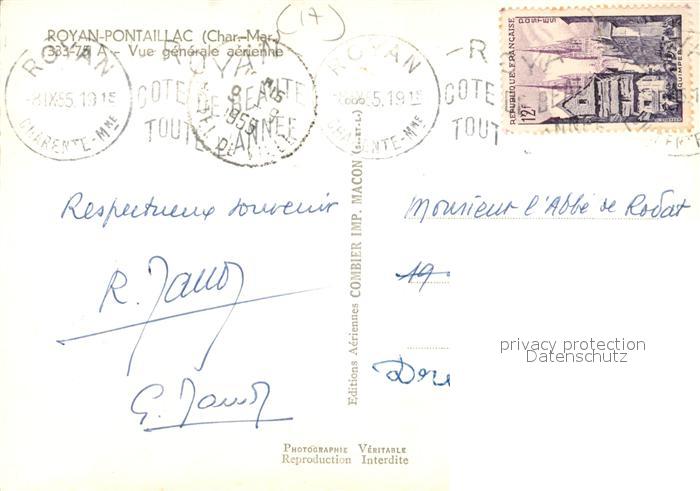 (17)
ROYAN-PONTAILLAC (Char.-Mar.)
333-75 A - Vue générale aérienne
ROYAN
-8 IX 55, 19 15
CHARENTE-MME
COTE DE BEAUTE
TOUTE L'ANNEE
ROYAN
1955
ROYAN
55, 19 15
CHARENTE-MME
- R
COTE
TOUT
POSTES
REPUBLIQUE FRANÇAISE
12F
QUIMPER
Respectueux souvenir
Monsieur l'Abbé de Rodat
19
Editions Aériennes COMBIER IMP. MACON
privacy protection
Datenschutz
PHOTOGRAPHIE VÉRITABLE
Reproduction Interdite